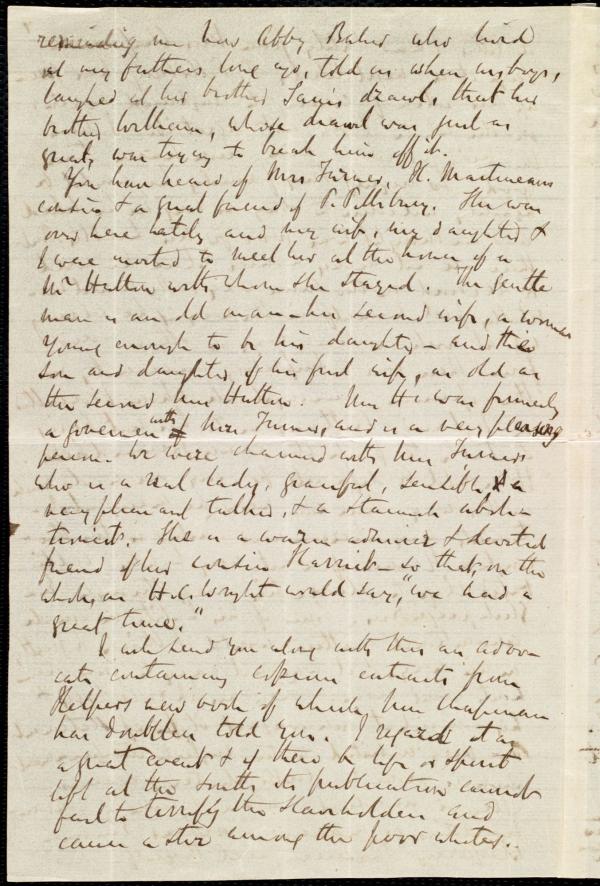 reminding me how Abby Baker who lived
at my fathers long ago, told us when us boys,
laughed at her brother Jamis drawl, that her
brother William, whose drawl was just as
great, was trying to break him off it.
You have heard of Mrs Turner, H. Martineaus
cousin & a great friend of P. Pillsbury. She was
over here lately and my wife, my daughter &
I were invited to meet her at the house of a
Mr Hutton with whom she stayed. The gentle
man is an old man – his second wife, a woman
young enough to be his daughter – and the
son and daughter of his first wife, as old as
the second Mrs Hutton. Mrs H. was formerly
a governess with Mrs Turner, and is a very pleasing
person. We were charmed with Mrs Turner
who is a real lady, graceful, sensible & a
very pleasant talker, & a staunch aboli-
tionist. She is a warm admirer & devoted
friend of her cousin Harriet – so that, on the
whole, as H. C. Wright would say, "we had a
great time."
I will send you along with this an advo-
cate containing copious extracts from
Helpers new work of which Mrs Chapman
has doubtless told you. I regard it as
a great event & if there be life or spirit
left at the South its publication cannot
fail to terrify the slaveholders and
cause a stir among the poor whites.